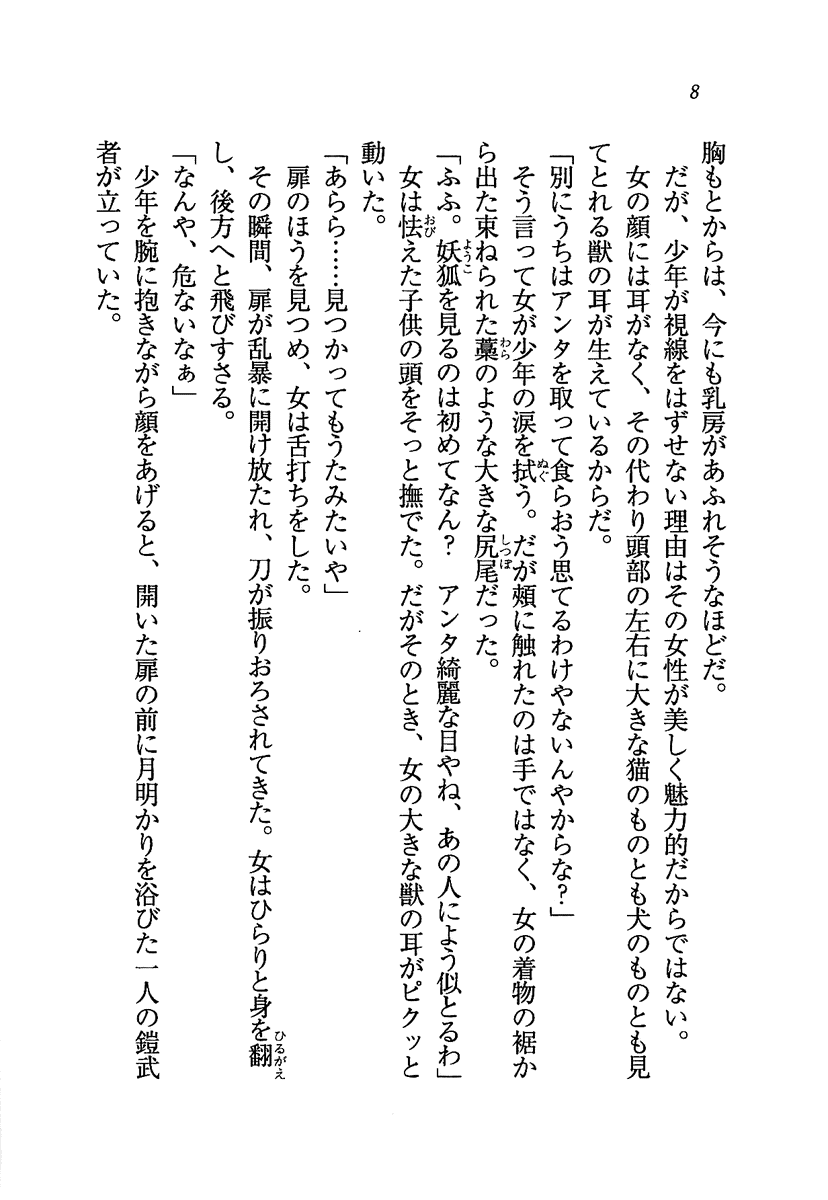 8
胸もとからは、今にも乳房があふれそうなほどだ。
だが、少年が視線をはずせない理由はその女性が美しく魅力的だからではない。
女の顔には耳がなく、その代わり頭部の左右に大きな猫のものとも犬のものとも見
てとれる獣の耳が生えているからだ。
「別にうちはアンタを取って食らおう思てるわけやないんやからな?」
そう言って女が少年の涙を拭う。だが頬に触れたのは手ではなく、女の着物の裾か
ら出た束ねられた藁のような大きな尻尾だった。
「ふふ。妖狐を見るのは初めてなん?　アンタ綺麗な目やね、あの人によう似とるわ」
女は怯えた子供の頭をそっと撫でた。だがそのとき、女の大きな獣の耳がピクッと
動いた。
「あらら……見つかってもうたみたいや」
扉のほうを見つめ、女は舌打ちをした。
その瞬間、扉が乱暴に開け放たれ、刀が振りおろされてきた。女はひらりと身を翻
し、後方へと飛びすさる。
「なんや、危ないなぁ」
少年を腕に抱きながら顔をあげると、開いた扉の前に月明かりを浴びた一人の鎧武
者が立っていた。